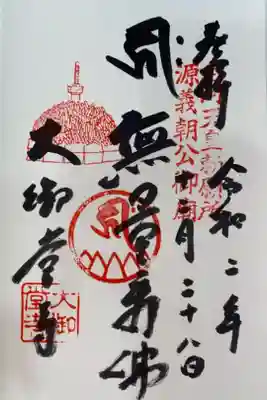 奉拝
令和二年
十二月二十八日
源義朝公御廟
無量寿佛
大御堂寺
大御
堂寺